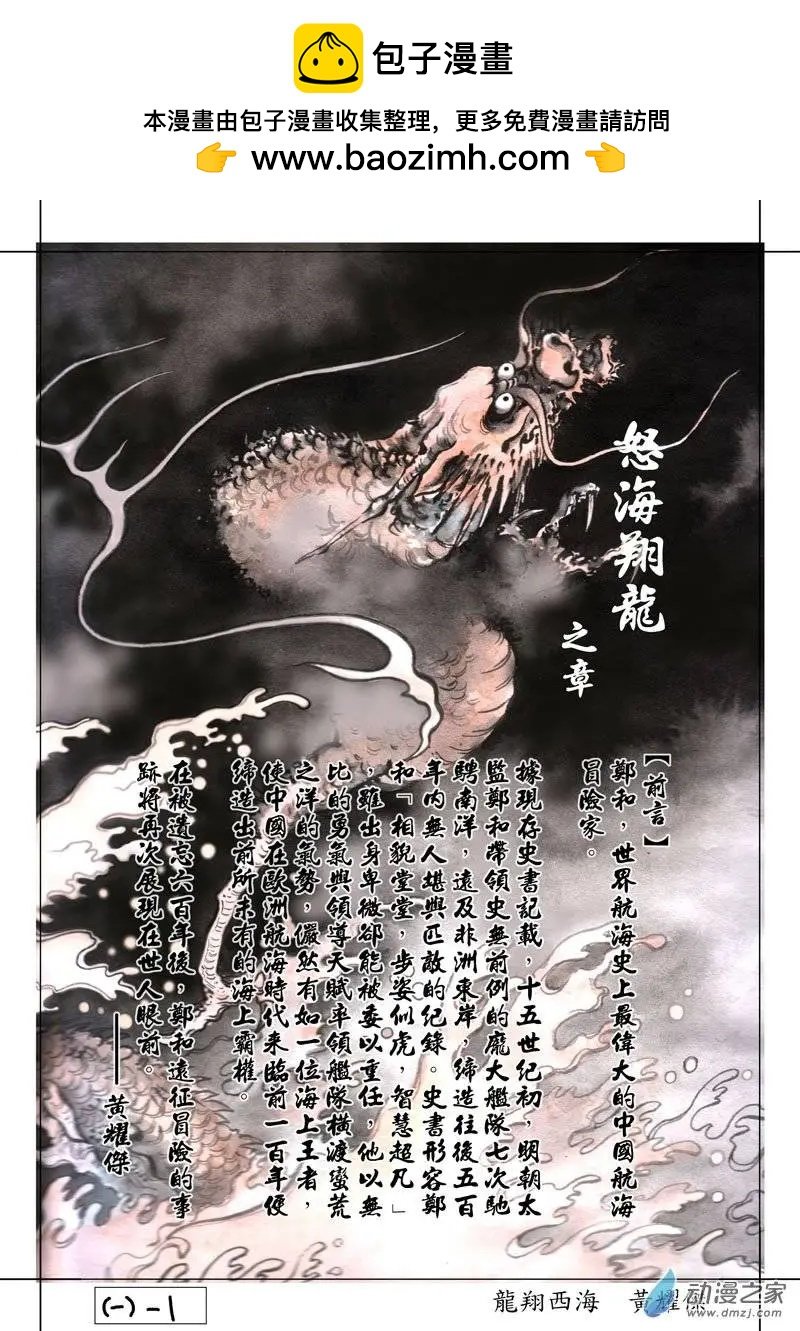 包子漫畫
本漫畫由包子漫畫收集整理，更多免費漫畫請訪問
👉 www.baozimh.com 👈
怒海翔龍
之章
【前言】
鄭和，世界航海史上最偉大的中國航海
冒險家。
據現存史書記載，十五世紀初，明朝太
監鄭和帶領史無前例的龐大艦隊七次馳
騁南洋，遠及非洲東岸，締造往後五百
年內無人堪與匹敵的紀錄。史書形容鄭
和「相貌堂堂，步姿似虎，智慧超凡」
，雖出身卑微卻能被委以重任，他以無
比的勇氣與領導天賦率領艦隊橫渡蠻荒
之洋的氣勢，儼然有如一位海上王者，
使中國在歐洲航海時代来臨前一百年便
締造出前所未有的海上霸權。
在被遺忘六百年後，鄭和遠征冒險的事
跡將再次展現在世人眼前。
——黃耀傑
(一)-1
龍翔西海　黃耀傑
动漫之家
www.dmzj.com